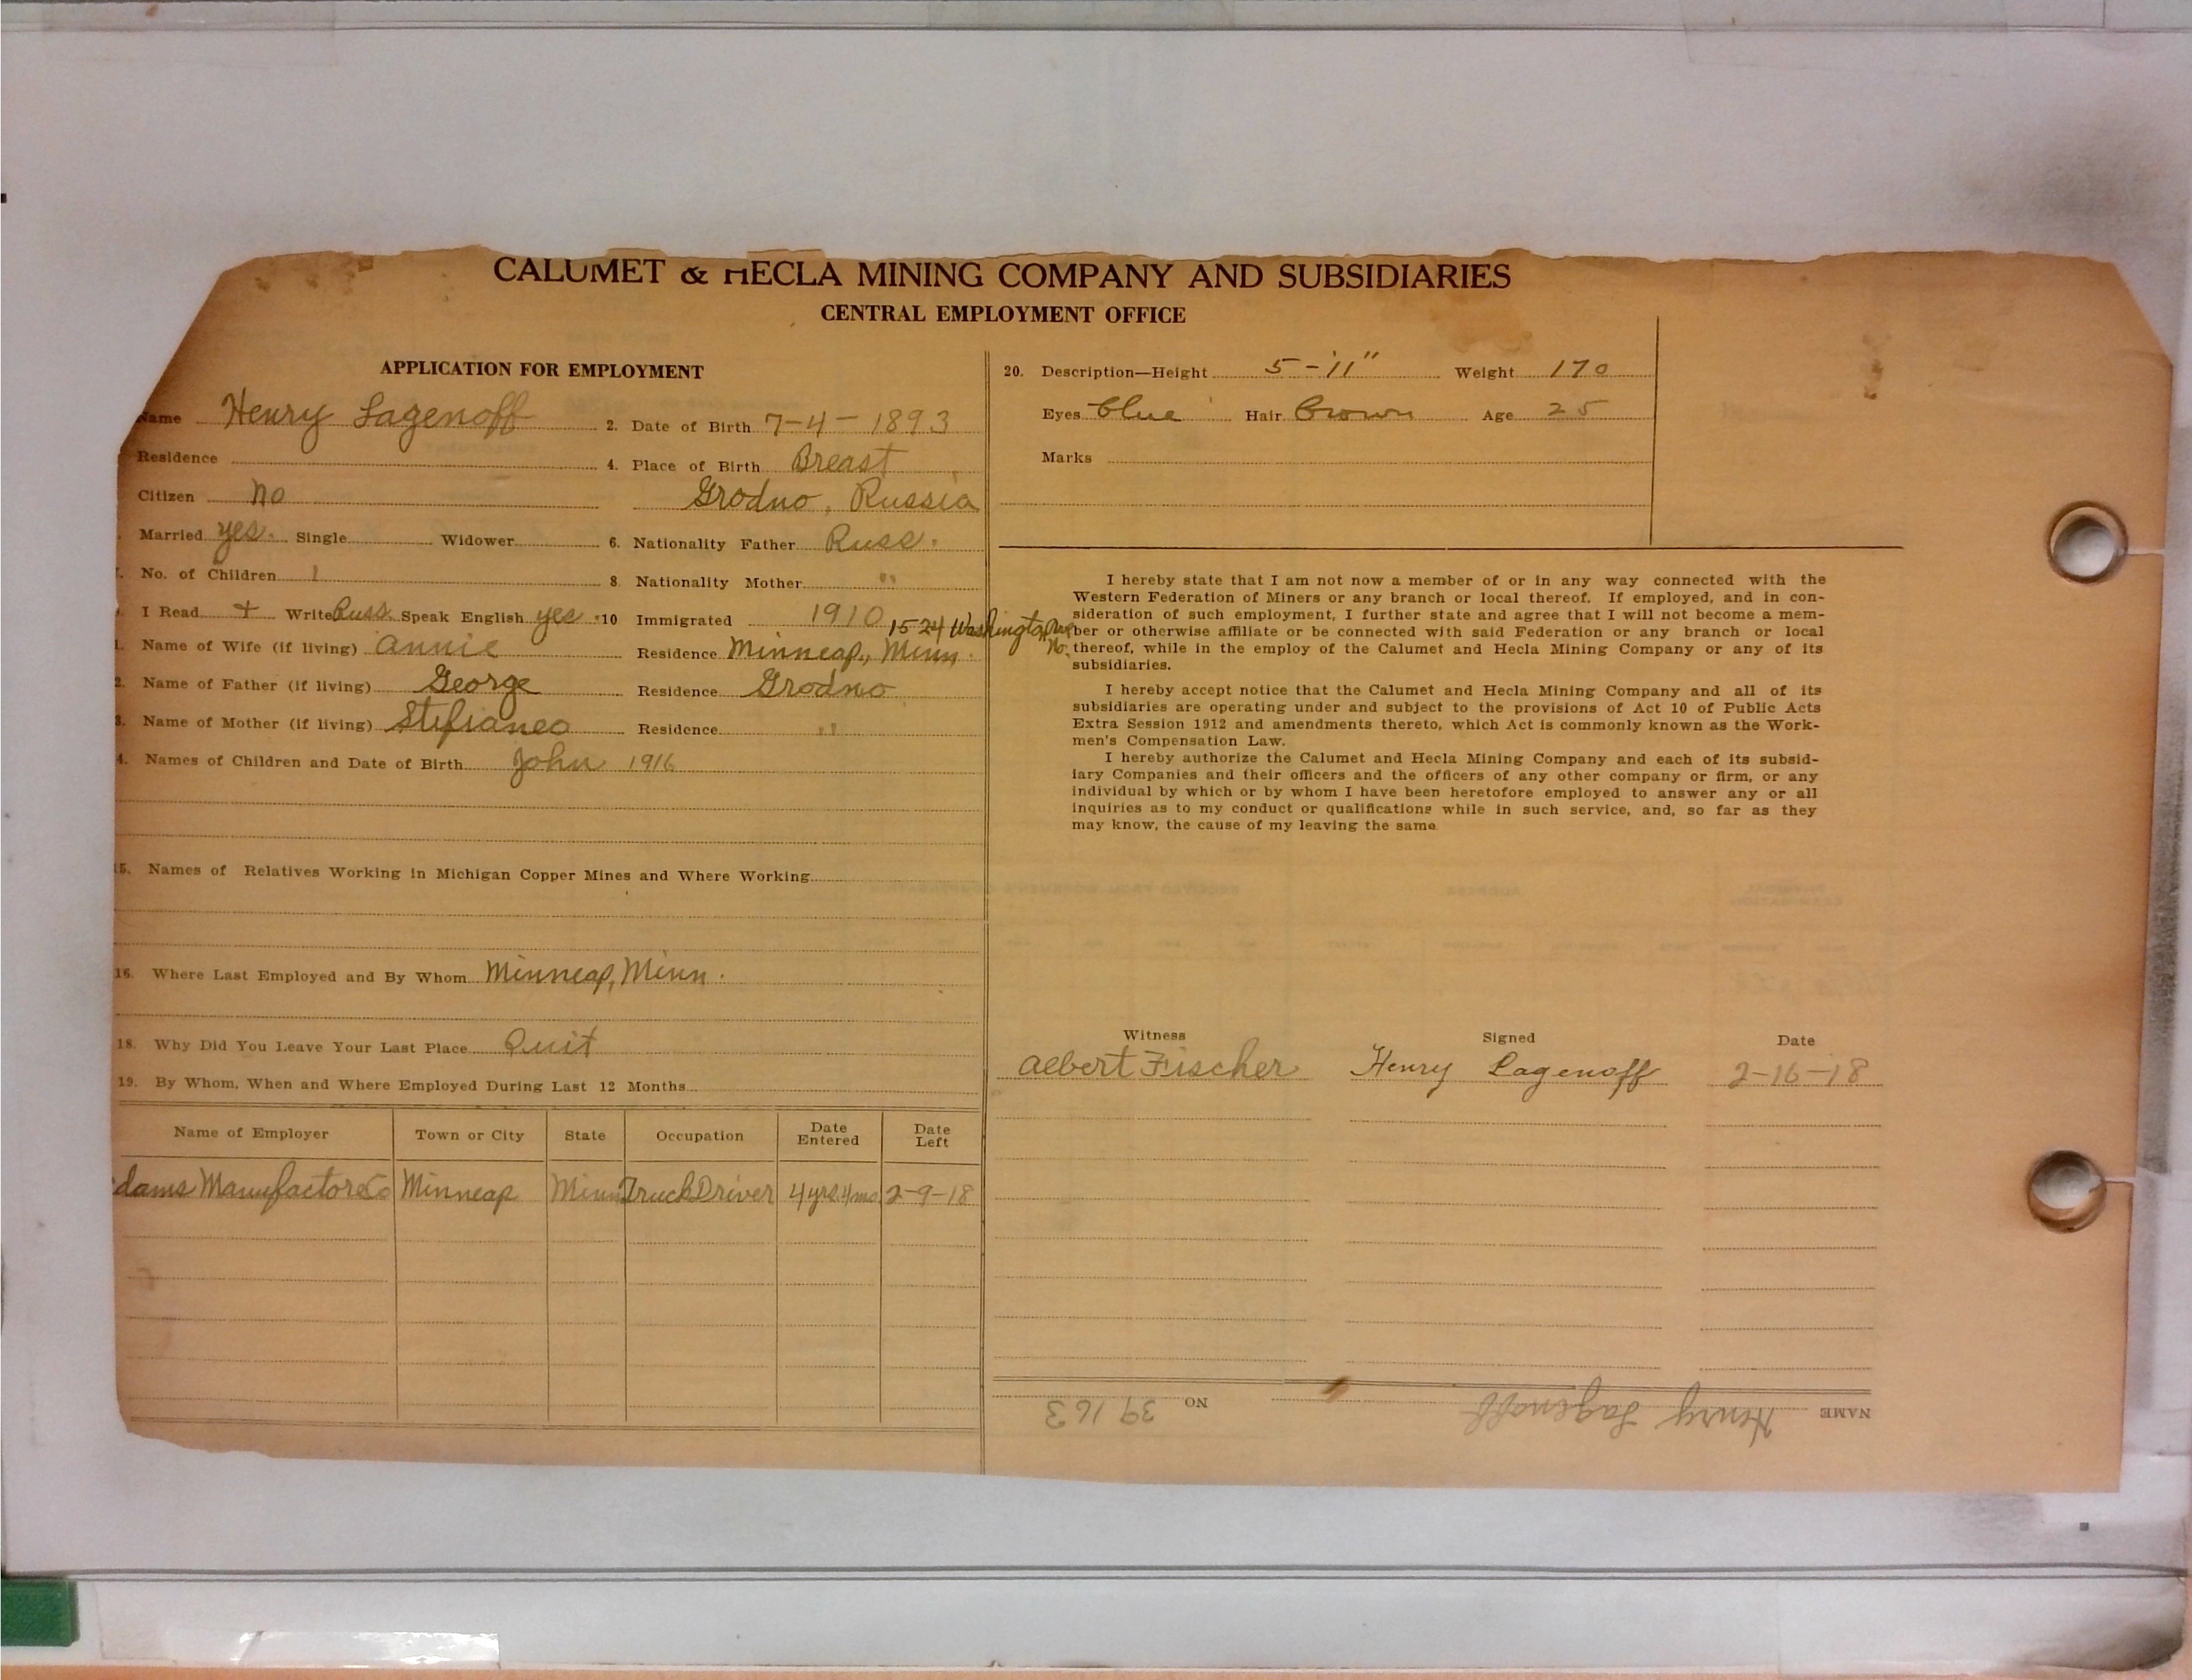 CALUMET & HECLA MINING COMPANY AND SUBSIDIARIES
CENTRAL EMPLOYMENT OFFICE
APPLICATION FOR EMPLOYMENT
Name Henry Lagenoff 2. Date of Birth 7-4-1893
Residence 4. Place of Birth Breast
Citizen No Grodno, Russia
Married yes. Single Widower 6. Nationality Father Russ.
No. of Children 1 8. Nationality Mother "
I Read + Write Russ. Speak English yes 10 Immigrated 1910
15-24 Washington Ave No.
1. Name of Wife (if living) Annie Residence Minneap, Minn.
2. Name of Father (if living) George Residence Grodno
3. Name of Mother (if living) Stefianeo Residence "
4. Names of Children and Date of Birth John 1916
15. Names of Relatives Working in Michigan Copper Mines and Where Working
16. Where Last Employed and By Whom Minneap, Minn.
18. Why Did You Leave Your Last Place Quit
19. By Whom, When and Where Employed During Last 12 Months
Name of Employer Town or City State Occupation Date Entered Date Left
dams Manufactore Co Minneap Minn Truck Driver 4 yrs. 4 mo. 2-9-18
20. Description—Height 5-'11" Weight 170
Eyes blue Hair Brown Age 25
Marks
I hereby state that I am not now a member of or in any way connected with the
Western Federation of Miners or any branch or local thereof. If employed, and in con-
sideration of such employment, I further state and agree that I will not become a mem-
ber or otherwise affiliate or be connected with said Federation or any branch or local
thereof, while in the employ of the Calumet and Hecla Mining Company or any of its
subsidiaries.
I hereby accept notice that the Calumet and Hecla Mining Company and all of its
subsidiaries are operating under and subject to the provisions of Act 10 of Public Acts
Extra Session 1912 and amendments thereto, which Act is commonly known as the Work-
men's Compensation Law.
I hereby authorize the Calumet and Hecla Mining Company and each of its subsid-
iary Companies and their officers and the officers of any other company or firm, or any
individual by which or by whom I have been heretofore employed to answer any or all
inquiries as to my conduct or qualifications while in such service, and, so far as they
may know, the cause of my leaving the same.
Witness Signed Date
Albert Fischer Henry Lagenoff 2-16-18
NAME Henry Lagenoff NO 39163